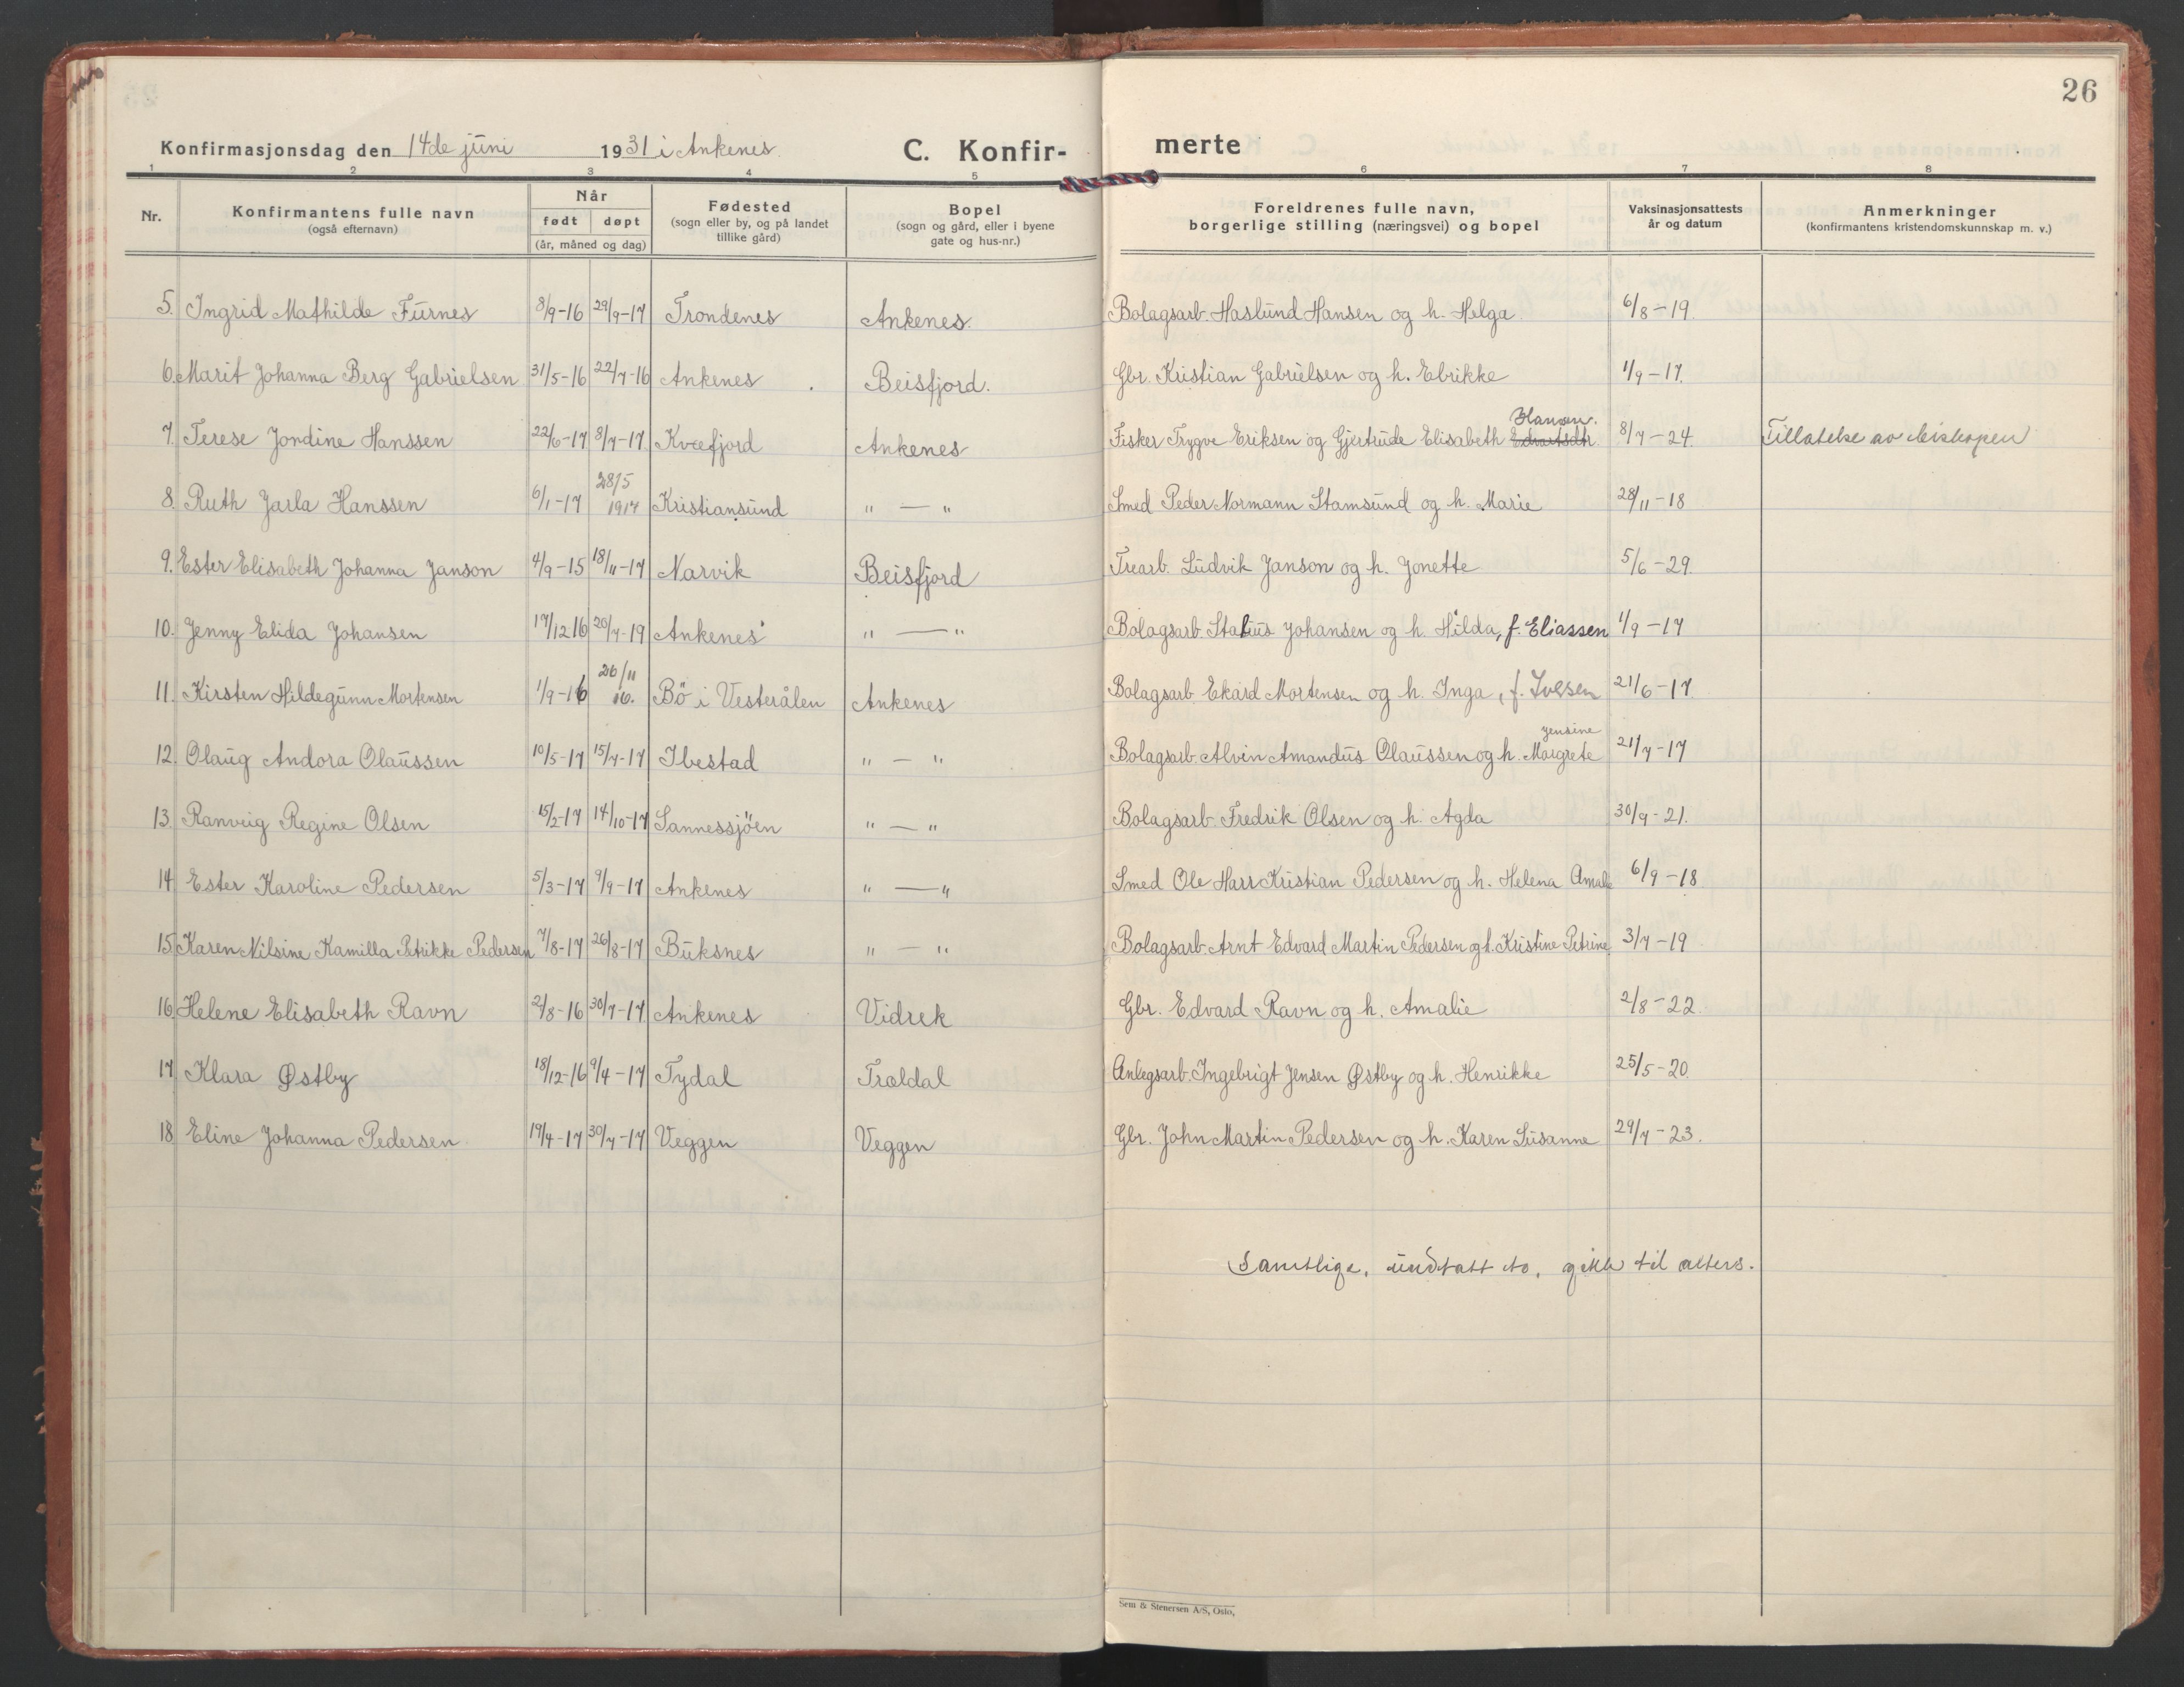 26
Konfirmasjonsdag den 14de juni 1931 i Ankenes. C. Konfir- merte
1 2 3 4 5 6 7 8
Nr. Konfirmantens fulle navn (også efternavn) Når født døpt (år, måned og dag) Fødested (sogn eller by, og på landet tillike gård) Bopel (sogn og gård, eller i byene gate og hus-nr.) Foreldrenes fulle navn, borgerlige stilling (næringsvei) og bopel Vaksinasjonsattests år og datum Anmerkninger (konfirmantens kristendomskunnskap m. v.)
5. Ingrid Mathilde Furnes 8/9-16 29/9-17 Trondenes Ankenes. Bolagsarb. Haslund Hansen og h. Helga 6/8-19.
6. Marit Johanna Berg Gabrielsen 31/5-16 22/7-16 Ankenes Beisfjord. Gbr. Kristian Gabrielsen og h. Ebrikke 1/9-17.
7. Terese Jondine Hanssen 22/6-17 8/7-17 Kvæfjord Ankenes Fisker Trygve Eriksen og Gjertrude Elisabeth Edvartsdtr. Hansen. 8/7-24. Tillatelse av biskopen
8. Ruth Jarla Hanssen 6/1-17 28/5 1917 Kristiansund " — " Smed Peder Normann Stamsund og h. Marie 28/11-18
9. Ester Elisabeth Johanna Janson 4/9-15 18/11-17 Narvik Beisfjord Trearb. Ludvik Janson og h. Jonette 5/6-29.
10. Jenny Elida Johansen 17/12 16 20/7-19 Ankenes " — " Bolagsarb. Stalius Johansen og h. Hilda, f. Eliassen 1/9-17
11. Kirsten Hildegunn Mortensen 1/9-16 26/11 16. Bö i Vesterålen Ankenes Bolagsarb. Ekard Mortensen og h. Inga, f. Ivesen 21/6-17.
12. Olaug Andora Olaussen 10/5-17 15/7-17 Ibestad " — " Bolagsarb. Alvin Amandus Olaussen og h. Jensine Margrete 21/7-17
13. Ranveig Regine Olsen 15/2-17 14/10-17 Sannessjöen " — " Bolagsarb. Fredrik Olsen og h. Agda 30/9-21.
14. Ester Karoline Pedersen 5/3-17 9/9-17 Ankenes " — " Smed Ole Harr Kristian Pedersen og h. Helena Amalie 6/9-18
15. Karen Nilsine Kamilla Petrikke Pedersen 7/8-17 26/8-17 Buksnes " — " Bolagsarb. Arnt Edvard Martin Pedersen og h. Kristine Petrine 3/7-19
16. Helene Elisabeth Ravn 2/8-16 30/7-17 Ankenes Vidrek Gbr. Edvard Ravn og h. Amalie 2/8-22.
17. Klara Østby 18/12-16 9/4-17 Tydal Trældal Anlegsarb. Ingebrigt Jensen Østby og h. Henrikke 25/5-20.
18. Eline Johanna Pedersen 19/4-17 30/7-17 Veggen Veggen Gbr. John Martin Pedersen og h. Karen Susanne 29/7-23.
Samtlige, undtatt to, gikk til alters.
Sem & Stenersen A/S, Oslo,